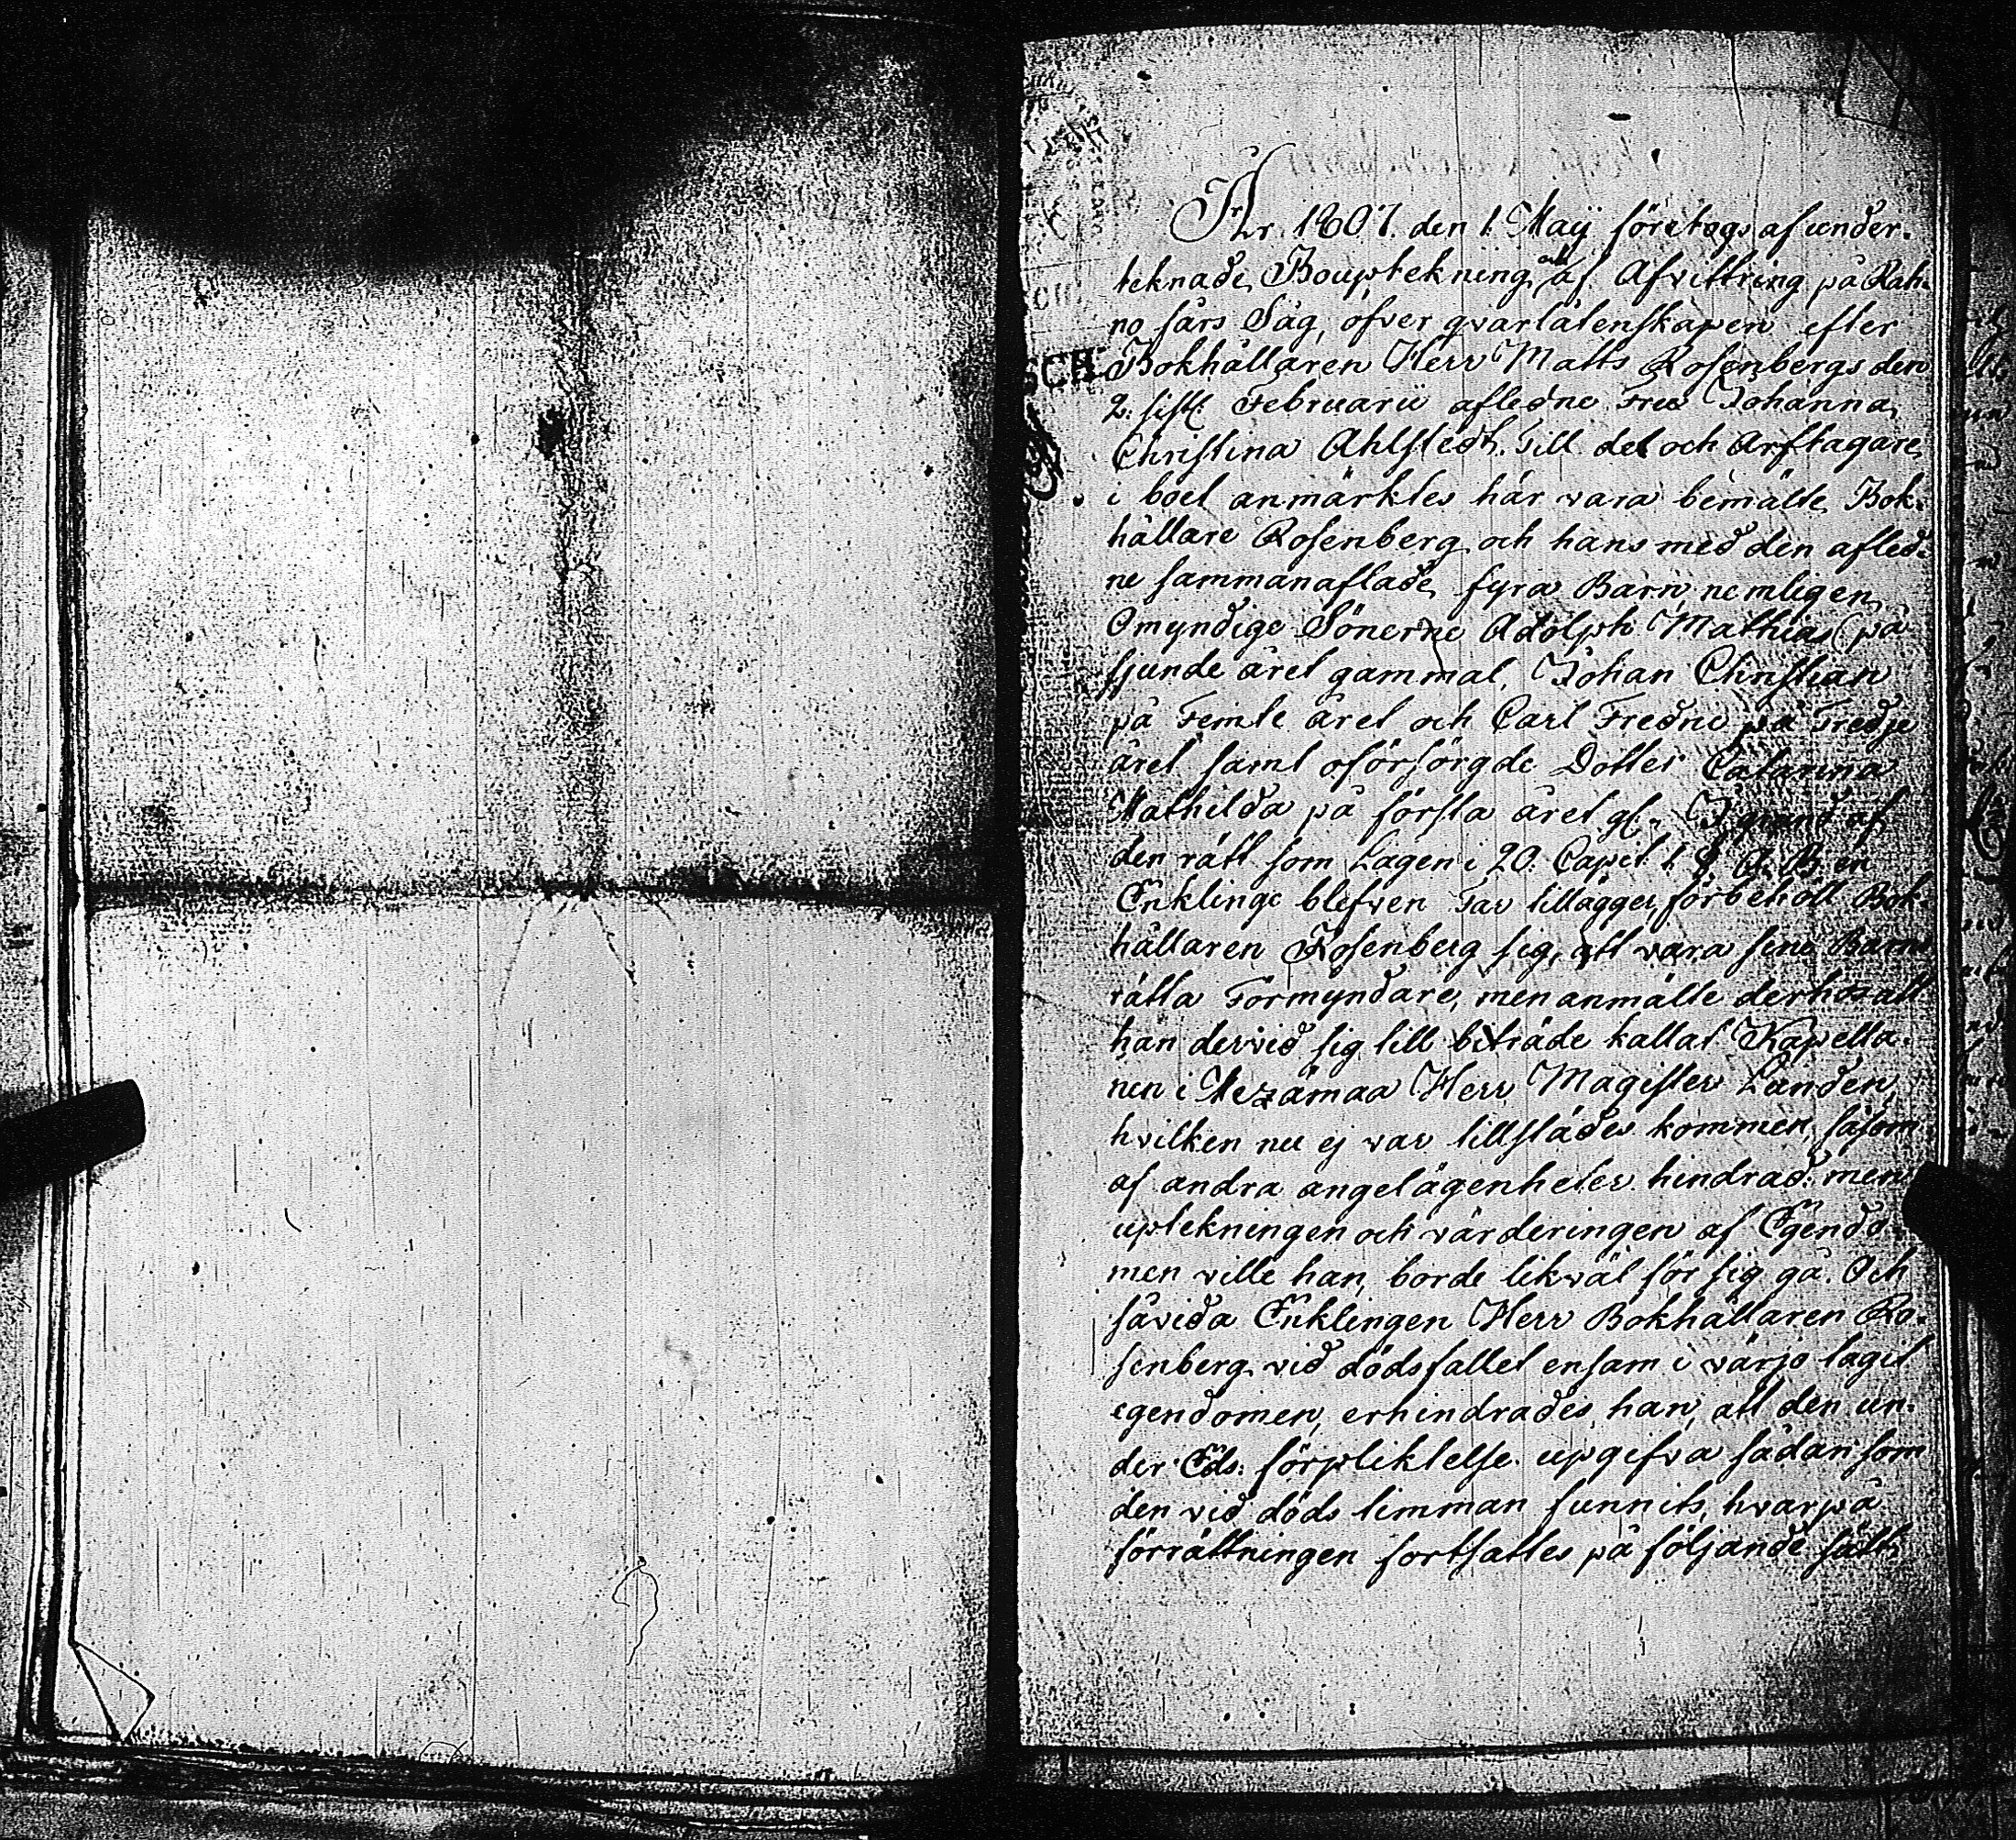 År 1807. den 1. Maji företogs af under-
teknade, Bouptekning och af Afvittring på Rah-
no fârs Såg, öfver qvarlåtenskapen efter
Bokhållaren Herr Matts Rosenbergs den
2: sistl: Februarii afledne Fru Johanna
Christina Ahlstedt. Till del och Arftagare
i boet anmärktes här vara bemälte Bok-
hållare Rosenberg och hans med den afled-
ne sammanaflade, fyra Barn nemligen
Omyndige Sönerne Adolph Mathias på
sjunde året gammal, Johan Christian
på Femte året och Carl Fredric på Tredje
året samt oförsörgde Dotter Catarina
Mathilda på första året gl. I grund af
den rätt som Lagen i 20. Capit. 1 §. Ä. B. en
Enkling blefven Far tillägger, förbehöll Bok-
hållaren Rosenberg sig, att vara sine Barns
rätta Förmyndare, men anmälte derhos att
han dervid sig till biträde kallat Kapella-
nen i Herr Magister Landen,
hvilken nu ej var tillstädes kommen, såsom
af andra angelägenheter hindrad: men
uptekningen och värderingen af Egendo-
men ville han, borde likväl för sig gå. Och
såvida Enklingen Herr Bokhållaren Ro-
senberg vid dödsfallet ensam i värjo tagit
egendomen, erhindrades han, att den un-
der Eds: förpliktelse upgifva sådan som
den vid döds timman funnits, hvarpå
förrättningen fortsattes på följande sätt,